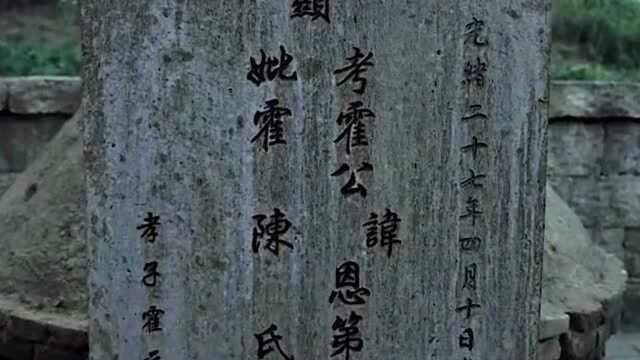 光緒二十七年四月十日
顯
考霍公諱恩第
妣霍陳氏
孝子霍元